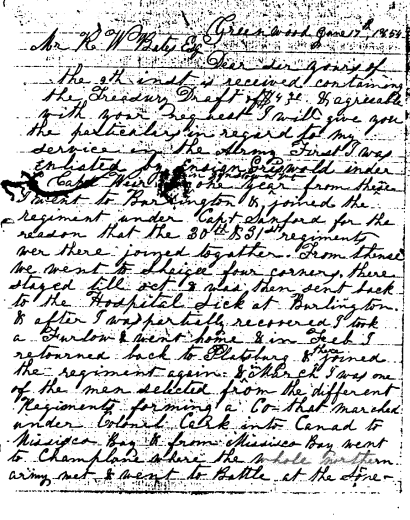 Greenwood June 17th 1854
Mr R W Bates Esq
Dear sir yours of
the 9th inst is received containing
the Treasury Draft of & agreable
with your request I will give you
the particulars in regard to my
service in the Army First I was
Enlisted by Ensign Griswold under
Capt Weir one year from there
I went to Burlington & joined the
regiment under Capt Sanford for the
reason that the 30th & 31st regiments
wer there joined together. From thense
we went to four corners, there
staged till oct & was then sent back
to the Hospital Sick at Burlington.
& after I was partially recovered I took
a Furlow & went home & in Feb I
retourned back to Platsburg & there joined
the regiment again & March I was one
of the men selected from the different
Regiments forming a Co that marched
under Colonel Clark into Canad to
Missisco Bay & from Missisco Bay went
to Champlane where the whole northern
army met & went to Battle at the Stone-